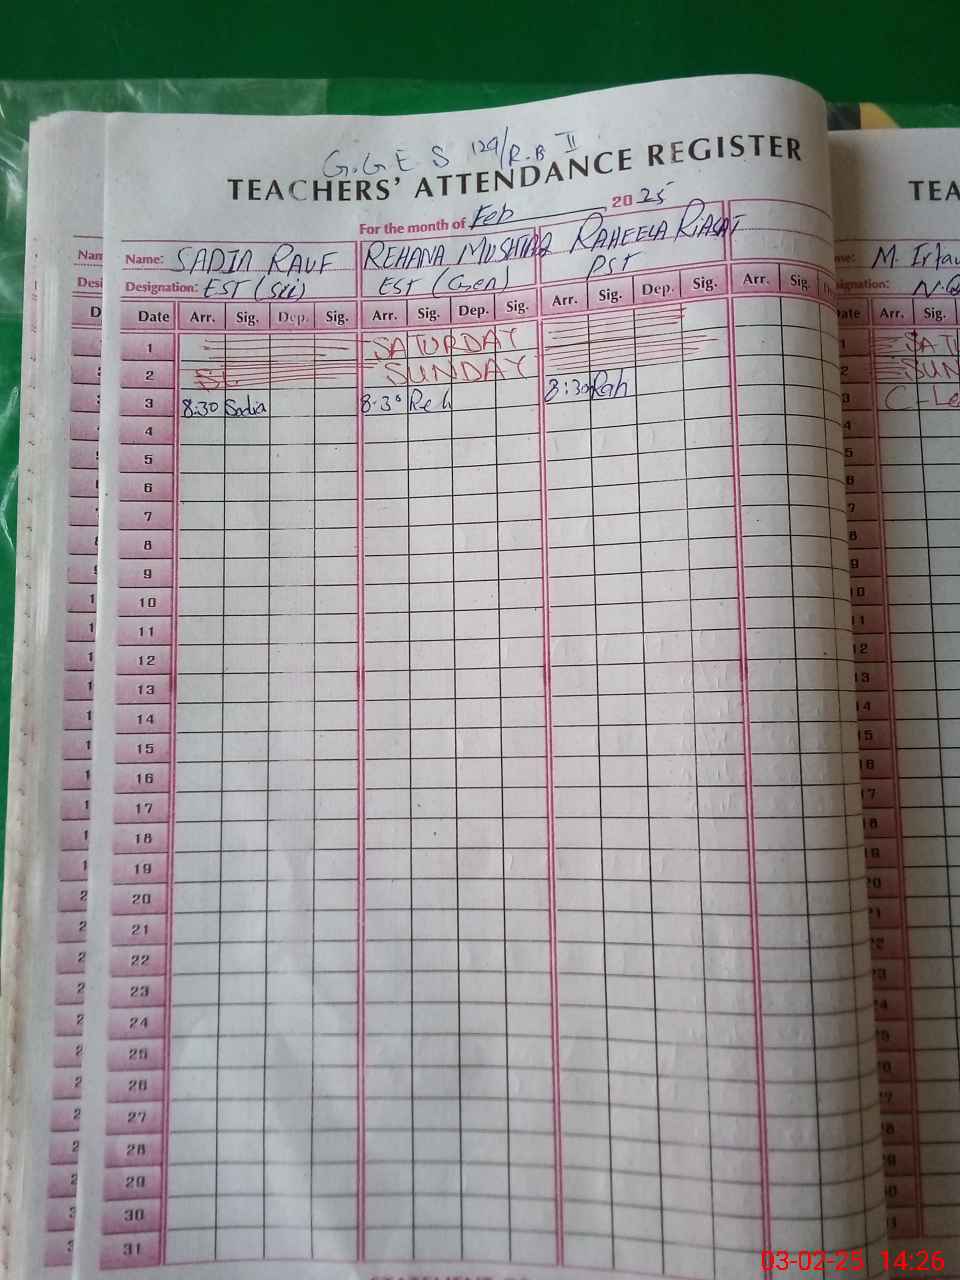 G.G E S 129/R.B II
TEACHERS' ATTENDANCE REGISTER
For the month of Feb 2025
Name: SADIA RAUF REHANA MUSHTAQ RAHEELA RIASAT
Designation: EST (Sci) EST (Gen) PST
Date Arr. Sig. Dep. Sig. Arr. Sig. Dep. Sig. Arr. Sig. Dep. Sig. Arr. Sig.
1 SATURDAY
2 SUNDAY
3 8:30 Sadia 8:30 Reh 8:30 Rah
4
5
6
7
8
9
10
11
12
13
14
15
16
17
18
19
20
21
22
23
24
25
26
27
28
29
30
31
TEA
M. Irfa
Arr. Sig.
SATU
SUN
C-Le
03-02-25 14:26